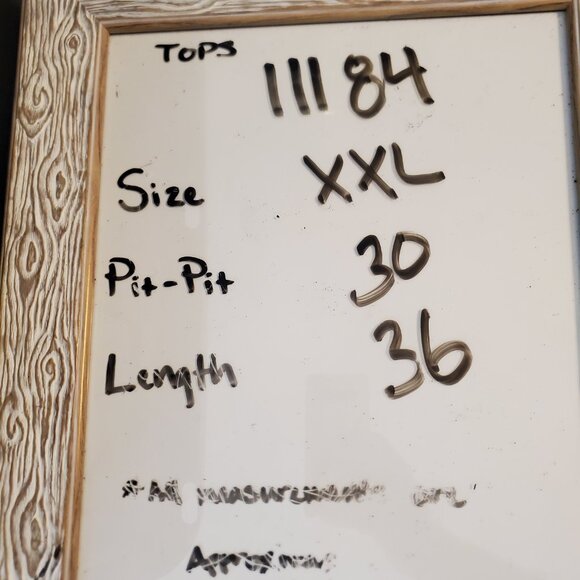 TOPS 11184
Size XXL
Pit-Pit 30
Length 36
*All measurements are
Approximate